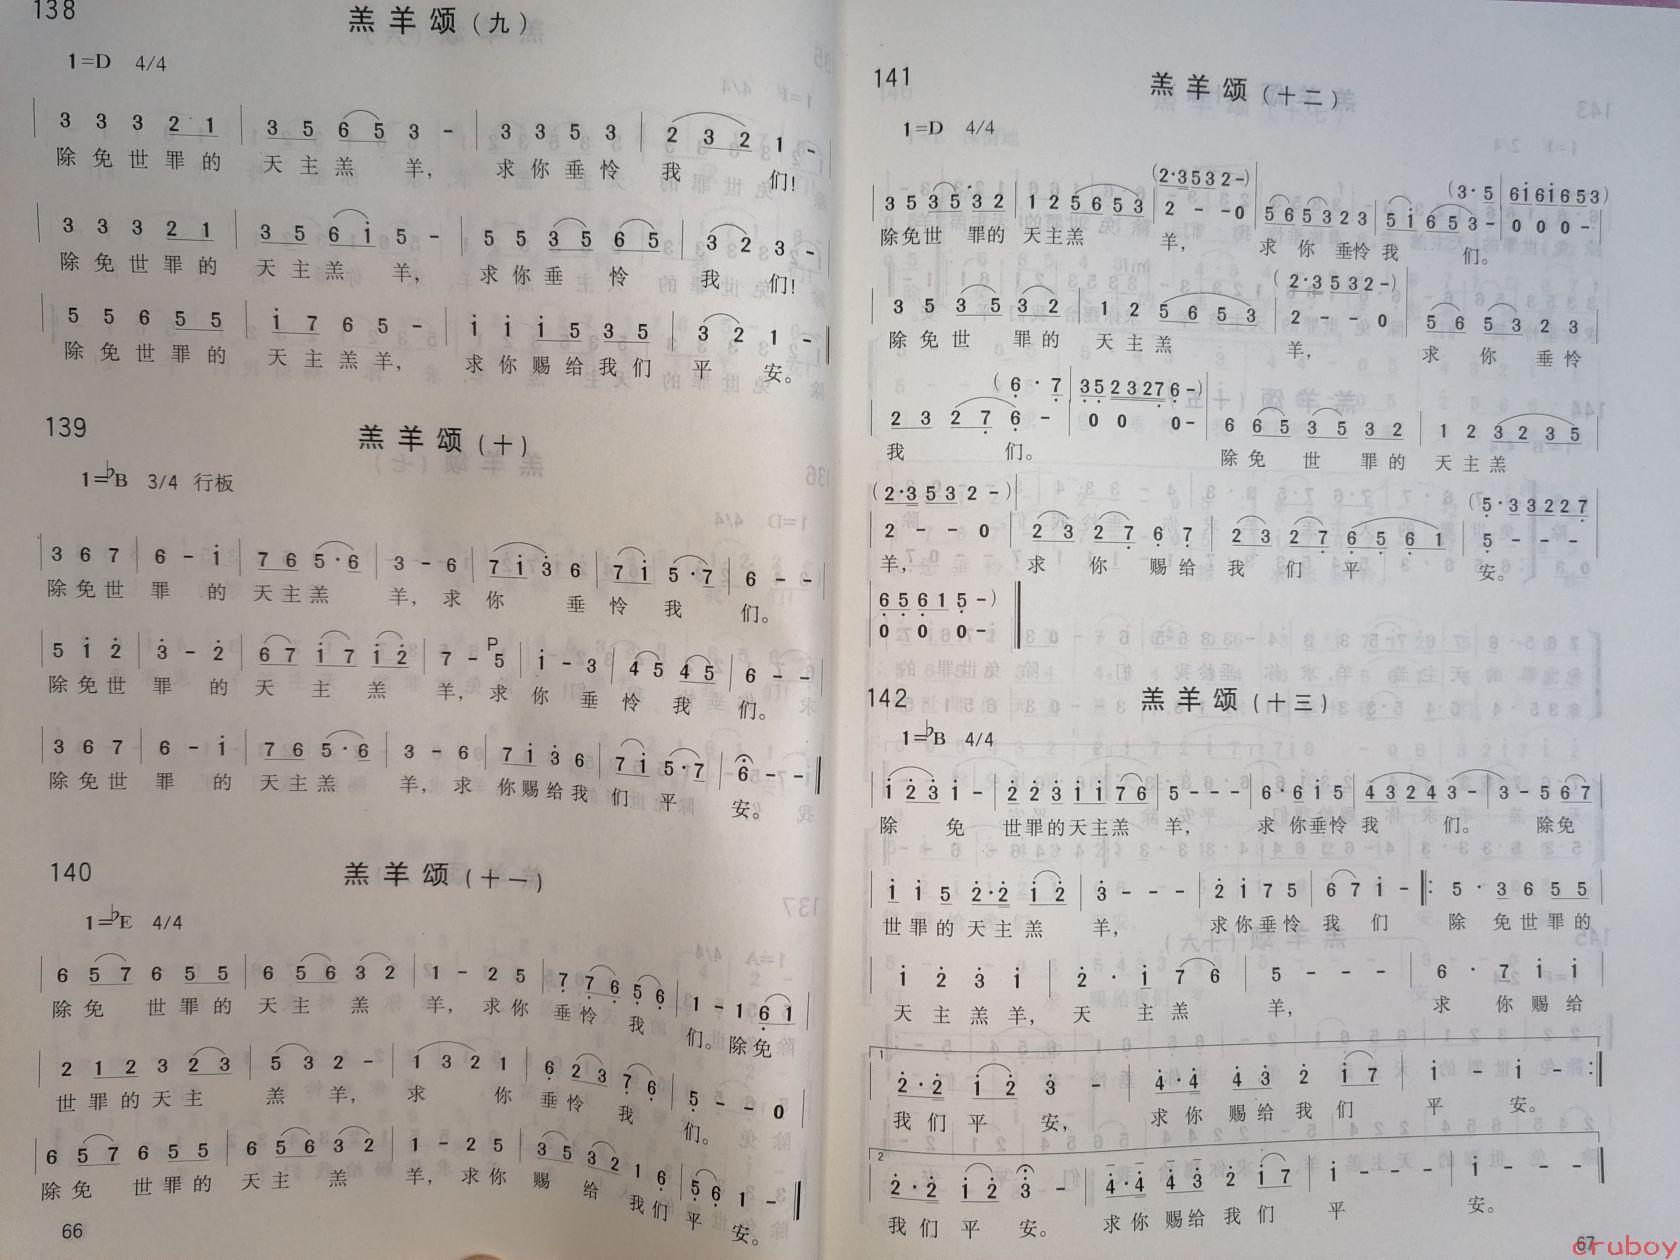 138
羔羊颂(九)
1=D 4/4
3 3 3 2 1 | 3 5 6 5 3 - | 3 3 5 3 | 2 3 2 1 - |
除免世罪的 天主羔 羊, 求你垂怜 我 们!
3 3 3 2 1 | 3 5 6 i 5 - | 5 5 3 5 6 5 | 3 2 3 - |
除免世罪的 天主羔 羊, 求你垂 怜 我 们!
5 5 6 5 5 | i 7 6 5 - | i i i 5 3 5 | 3 2 1 - ‖
除免世罪的 天主羔羊, 求你赐给我们 平 安。
139
羔羊颂(十)
1=♭B 3/4 行板
3 6 7 | 6 - i | 7 6 5·6 | 3 - 6 | 7 i 3 6 | 7 i 5·7 | 6 - - |
除免世 罪 的 天主羔 羊, 求 你 垂 怜 我 们。
5 i 2 | 3 - 2 | 6 7 i 7 i 2 | 7 - 5 | i - 3 | 4 5 4 5 | 6 - - |
P
除免世 罪 的 天 主 羔 羊, 求 你 垂 怜 我 们。
3 6 7 | 6 - i | 7 6 5·6 | 3 - 6 | 7 i 3 6 | 7 i 5·7 | 6 - - ‖
除免世 罪 的 天主羔 羊, 求 你赐给我 们 平 安。
140
羔羊颂(十一)
1=♭E 4/4
6 5 7 6 5 5 | 6 5 6 3 2 | 1 - 2 5 | 7 7 6 5 6 | 1 - 1 6 1 |
除免 世罪的 天主 羔 羊, 求你 垂怜 我 们。除免
2 1 2 3 2 3 | 5 3 2 - | 1 3 2 1 | 6 2 3 7 6 | 5 - - 0 |
世罪的天主 羔 羊, 求 你 垂怜 我 们。
6 5 7 6 5 5 | 6 5 6 3 2 | 1 - 2 5 | 3 5 3 2 1 6 | 5 6 1 - ‖
除免 世罪的 天主 羔 羊, 求你 赐 给 我们 平 安。
66
141
羔羊颂(十二)
1=D 4/4
(2·3 5 3 2 -) (3·5 | 6 i 6 i 6 5 3)
3 5 3 5 3 2 | 1 2 5 6 5 3 | 2 - - 0 | 5 6 5 3 2 3 | 5 i 6 5 3 - | 0 0 0 - |
除免世 罪的 天主羔 羊, 求 你 垂怜我 们。
(2·3 5 3 2 -)
3 5 3 5 3 2 | 1 2 5 6 5 3 | 2 - - 0 | 5 6 5 3 2 3 |
除免世 罪的 天主羔 羊, 求 你 垂怜
(6·7 | 3 5 2 3 2 7 6 -)
2 3 2 7 6 - | 0 0 0 - | 6 6 5 3 5 3 2 | 1 2 3 2 3 5 |
我 们。 除免 世 罪的 天主羔
(2·3 5 3 2 -) (5·3 3 2 2 7
2 - - 0 | 2 3 2 7 6 7 | 2 3 2 7 6 5 6 1 | 5 - - - |
羊, 求 你 赐给 我 们 平 安。
6 5 6 1 5 -)
0 0 0 - ‖
142
羔羊颂(十三)
1=♭B 4/4
i 2 3 i - | 2 2 3 i i 7 6 | 5 - - - | 6·6 i 5 | 4 3 2 4 3 - | 3 - 5 6 7 |
除 免 世罪的天主羔 羊, 求 你垂怜 我 们。 除免
i i 5 2·2 i 2 | 3 - - - | 2 i 7 5 | 6 7 i - ‖: 5·3 6 5 5 |
世罪的天主羔 羊, 求你垂怜 我 们 除 免世罪的
i 2 3 i | 2·i 7 6 | 5 - - - | 6·7 i i |
天主羔羊, 天 主羔 羊, 求 你赐给
1
2·2 i 2 3 - | 4·4 4 3 2 i 7 | i - i - :‖
我们平 安, 求你 赐给我们 平 安。
2
2·2 i 2 3 - | 4·4 4 3 2 i 7 | i - - - | i - - - ‖
我们平 安。 求你 赐给我们 平 安。
67
cruboy